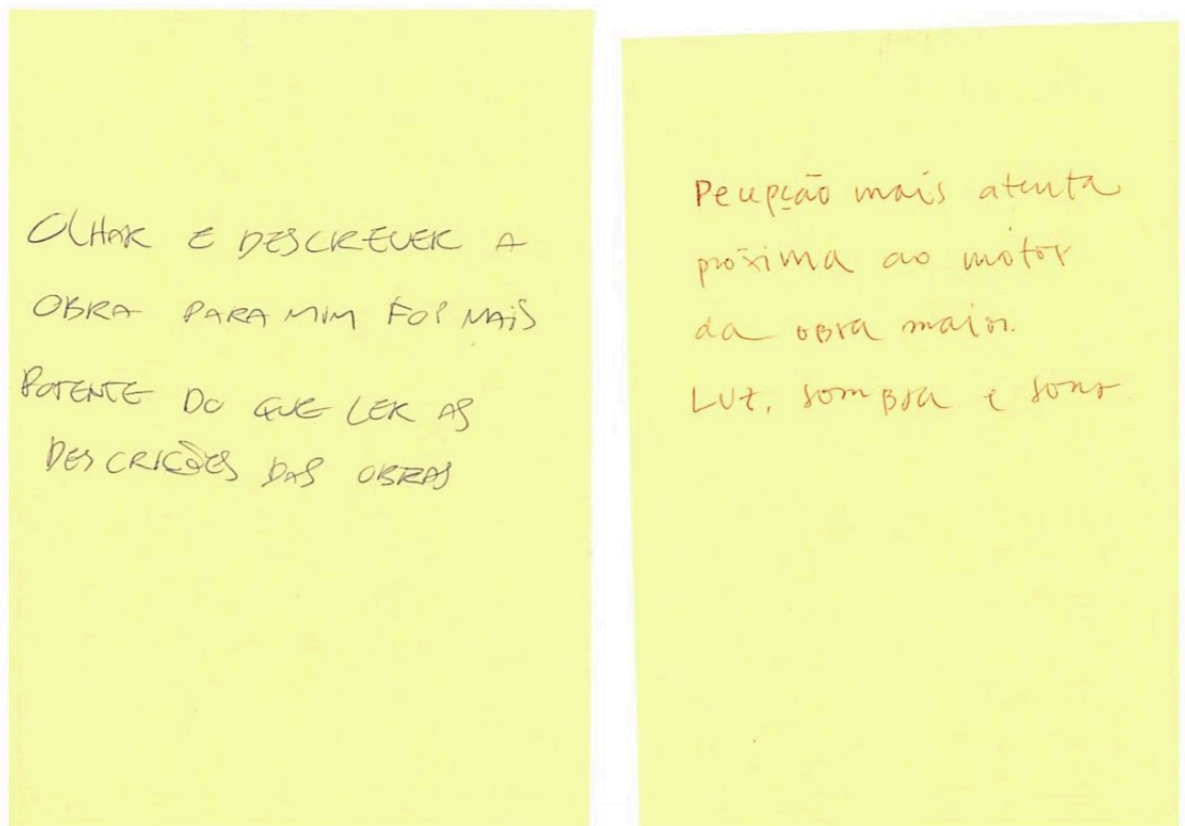 OLHAR E DESCREVER A
OBRA PARA MIM FOI MAIS
POTENTE DO QUE LER AS
DESCRIÇÕES DAS OBRAS
Pecepção mais atenta
próxima ao motor
da obra maior.
LUZ, sombra e sons